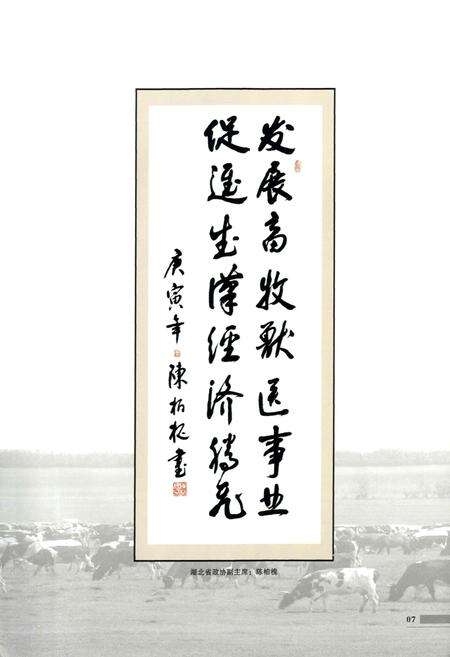 发展畜牧獸医事业
促進武漢經济腾飞
庚寅年 陳柏槐書
湖北省政协副主席：陈柏槐
07